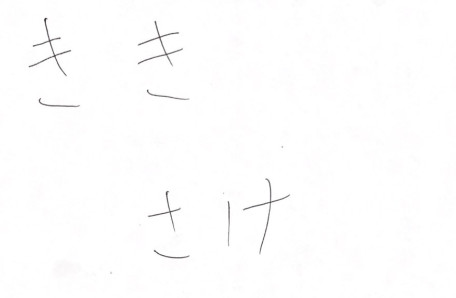 きき
さけ